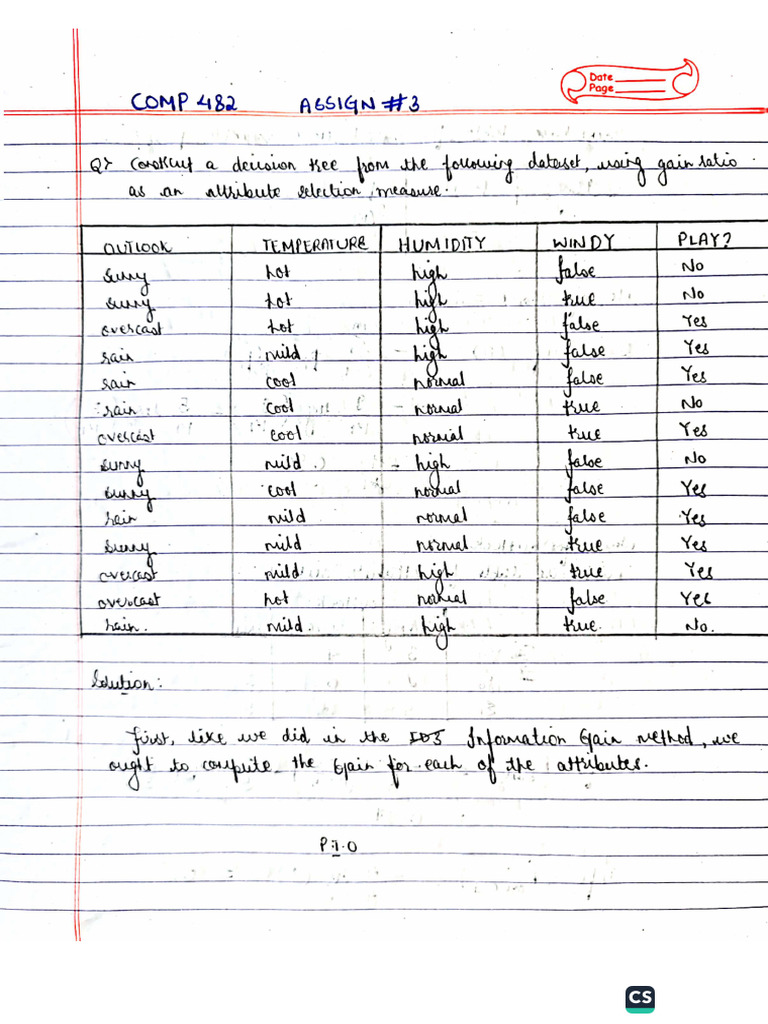 Date
Page
COMP 482 ASSIGN #3
Q> Construct a decision tree from the following dataset, using gain ratio
as an attribute selection measure.
OUTLOOK TEMPERATURE HUMIDITY WINDY PLAY?
sunny hot high false No
sunny hot high true No
overcast hot high false Yes
rain mild high false Yes
rain cool normal false Yes
rain cool normal true No
overcast cool normal true Yes
sunny mild high false No
sunny cool normal false Yes
rain mild normal false Yes
sunny mild normal true Yes
overcast mild high true Yes
overcast hot normal false Yes
rain. mild. high true. No.
Solution:
First, like we did in the ID3 Information Gain method, we
ought to compute the Gain for each of the attributes.
P.T.O
CS